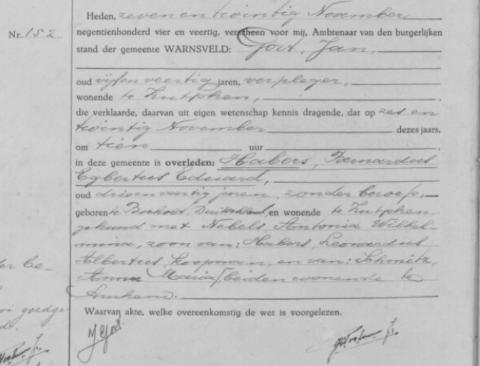 Heden, zeven en twintig November
Nr. 152
negentienhonderd vier en veertig, verscheen voor mij, Ambtenaar van den burgerlijken
stand der gemeente WARNSVELD: Jan,
oud vijf en veertig jaren, verpleger,
wonende te Zutphen,
die verklaarde, daarvan uit eigen wetenschap kennis dragende, dat op zes en
twintig November dezes jaars,
om tien uur
in deze gemeente is overleden: Habers, Bernardus
Egbertus Eduard,
oud drie en veertig jaren, zonder beroep,
geboren te Bocholt, Duitschland, en wonende te Zutphen
gehuwd met Nobels, Antonia Wilhel-
mina, zoon van: Habers, Leonardus
Albertus, koopman, en van: Schmitz,
Anna Maria, beiden wonende te
Arnhem.
Waarvan akte, welke overeenkomstig de wet is voorgelezen.